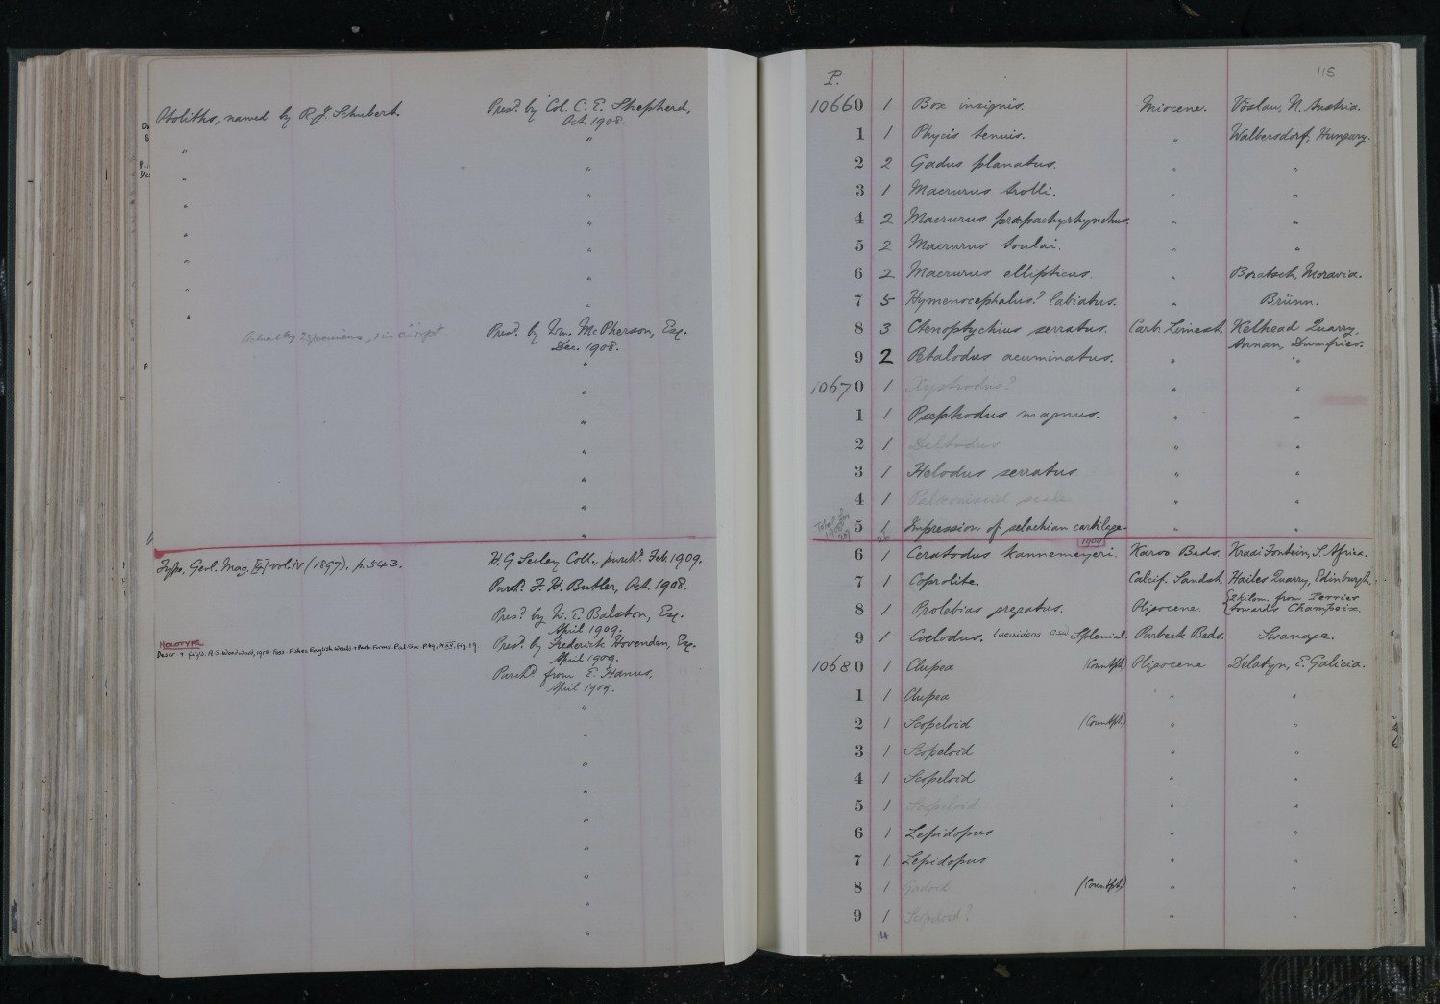 Otoliths, named by R.J. Schubert. Pres.d by Col. C. E. Shepherd,
Oct. 1908.
" "
" "
" "
" "
" "
" "
" "
Pres.d by Wm. McPherson, Esq.
Dec. 1908.
Type, Geol. Mag. [4] vol. iv (1897). p. 543. H. G Seeley Coll., purch.d Feb. 1909.
Purch.d F. H. Butler, Oct. 1908.
Pres.d by W. E. Balston, Esq.
April 1909.
HOLOTYPE Pres.d by Frederick Hovenden, Esq.
Descr. & fig'd. A. S. Woodward, 1918 Foss. Fishes English Weald & Purb. Forms. Pal. Soc.
April 1909.
Purch.d from E. Hanus,
April 1909.
P. 115
10660 1 Box insignis. Miocene. Vöslau, N. Austria.
1 1 Phycis tenuis. " Walbersdorf, Hungary.
2 2 Gadus planatus. " "
3 1 Macrurus trolli. " "
4 2 Macrurus præpachyrhynchus. " "
5 2 Macrurus toulai. " "
6 2 Macrurus ellipticus. " Boratsch, Moravia.
7 5 Hymenocephalus? labiatus. " Brünn.
8 3 Ctenoptychius serratus. Carb. Limest. Kelhead Quarry,
Annan, Dumfries.
9 2 Petalodus acuminatus. " "
10670 1 Xystrodus? " "
1 1 Psephodus magnus. " "
2 1 Deltodus " "
3 1 Helodus serratus " "
4 1 Palæoniscid scale " "
5 1 Impression of selachian cartilage. " "
1909
6 1 Ceratodus kannemeyeri. Karoo Beds. Kraai Fontein, S. Africa.
7 1 Coprolite. Calcif. Sandst. Hailes Quarry, Edinburgh.
8 1 Prolebias Oligocene. 2 kilom. from Perrier
towards Champeix.
9 1 Coelodus. Splenial. Purbeck Beds. Swanage.
10680 1 Clupea (Countpt.) Oligocene Delatyn, E. Galicia.
1 1 Clupea " "
2 1 Scopeloid (Countpt.) " "
3 1 Scopeloid " "
4 1 Scopeloid " "
5 1 Scopeloid " "
6 1 Lepidopus " "
7 1 Lepidopus " "
8 1 Gadoid (Countpt.) " "
9 1 Scopeloid? " "